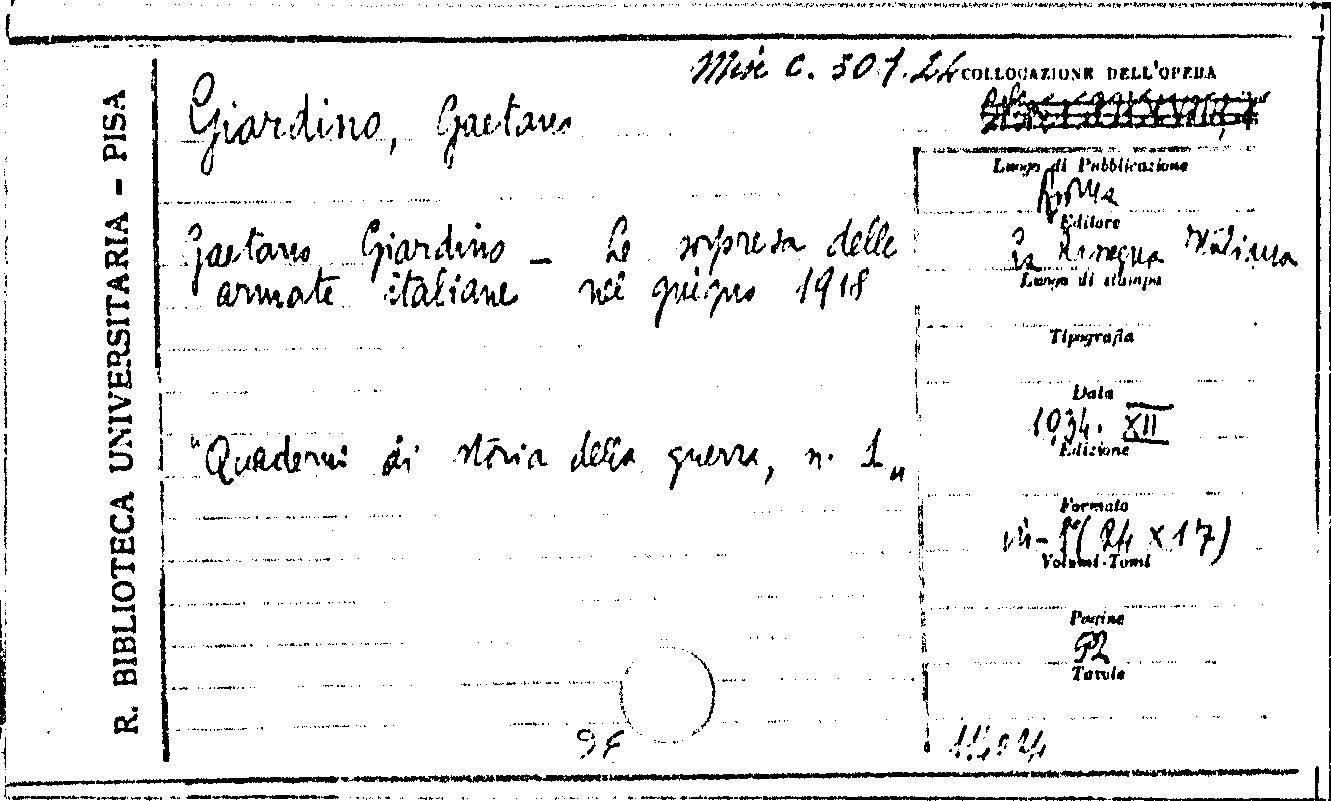 R. BIBLIOTECA UNIVERSITARIA - PISA
Misc C. 507.24
COLLOCAZIONE DELL'OPERA
Giardino, Gaetano
Luogo di Pubblicazione
Roma
Editore
Gaetano Giardino - La sorpresa delle
La Rassegna Italiana
armate italiane nel giugno 1918
Luogo di stampa
Tipografia
Data
1934. XII
"Quaderni di storia della guerra, n. 1"
Edizione
Formato
in-8° (24 x 17)
Volumi-Tomi
Pagine
52
Tavole